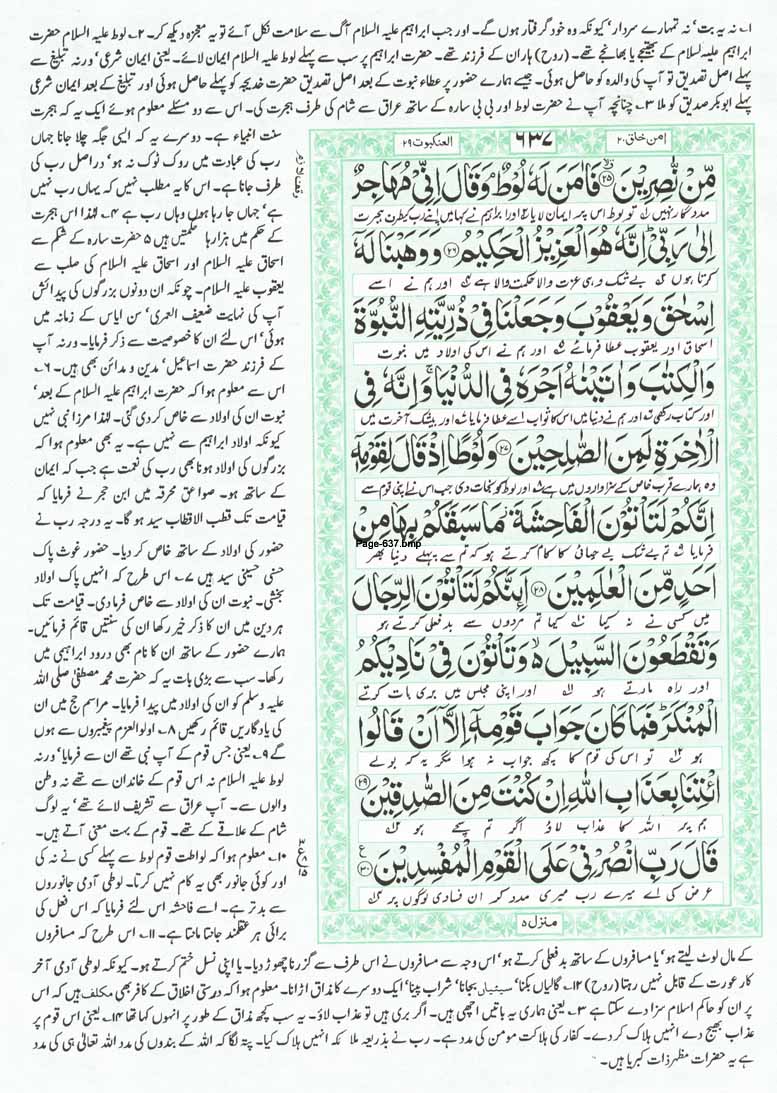 ۱ نہ یہ بت‘ نہ تمہارے سردار‘ کیونکہ وہ خود گرفتار ہوں گے۔ اور جب ابراہیم علیہ السلام آگ سے سلامت نکل آئے تو یہ معجزہ دیکھ کر۔ ۲ لوط علیہ السلام حضرت
ابراہیم علیہ السلام کے بھتیجے یا بھانجے تھے۔ (روح) ہاران کے فرزند تھے۔ حضرت ابراہیم پر سب سے پہلے لوط علیہ السلام ایمان لائے۔ یعنی ایمان شرعی‘ ورنہ تبلیغ سے
پہلے اصل تصدیق تو آپ کی والدہ کو حاصل ہوئی۔ جیسے ہمارے حضور پر عطاء نبوت کے بعد اصل تصدیق حضرت خدیجہ کو پہلے حاصل ہوئی اور تبلیغ کے بعد ایمان شرعی
پہلے ابوبکر صدیق کو ملا ۳ چنانچہ آپ نے حضرت لوط اور بی بی سارہ کے ساتھ عراق سے شام کی طرف ہجرت کی۔ اس سے دو مسئلے معلوم ہوئے ایک یہ کہ ہجرت
امن خلق ۲۰
۶۳۷
العنکبوت ۲۹
مِّنْ نّٰصِرِیْنَ ﴿۲۵﴾ فَاٰمَنَ لَهٗ لُوْطٌ ۘ وَقَالَ اِنِّیْ مُهَاجِرٌ
مددگار نہیں تو لوط اس پر ایمان لایا اور ابراہیم نے کہا میں اپنے رب کی طرف ہجرت
اِلٰی رَبِّیْ ؕ اِنَّهٗ هُوَ الْعَزِیْزُ الْحَكِیْمُ ﴿۲۶﴾ وَوَهَبْنَا لَهٗ
کرتا ہوں بے شک وہی عزت والا حکمت والا ہے اور ہم نے اسے
اِسْحٰقَ وَیَعْقُوْبَ وَجَعَلْنَا فِیْ ذُرِّیَّتِهِ النُّبُوَّةَ
اسحاق اور یعقوب عطا فرمائے اور ہم نے اس کی اولاد میں نبوت
وَالْكِتٰبَ وَاٰتَیْنٰهُ اَجْرَهٗ فِی الدُّنْیَا ۚ وَاِنَّهٗ فِی
اور کتاب رکھی اور ہم نے دنیا میں اس کا ثواب اسے عطا فرمایا اور بیشک آخرت میں
الْاٰخِرَةِ لَمِنَ الصّٰلِحِیْنَ ﴿۲۷﴾ وَلُوْطًا اِذْ قَالَ لِقَوْمِهٖۤ
وہ ہمارے قرب خاص کے سزاواروں میں ہے اور لوط کو نجات دی جب اس نے اپنی قوم سے
اِنَّكُمْ لَتَاْتُوْنَ الْفَاحِشَةَ ؗ مَا سَبَقَكُمْ بِهَا مِنْ
فرمایا تم بے شک بے حیائی کا کام کرتے ہو کہ تم سے پہلے دنیا بھر
Page-637.bmp
اَحَدٍ مِّنَ الْعٰلَمِیْنَ ﴿۲۸﴾ اَئِنَّكُمْ لَتَاْتُوْنَ الرِّجَالَ
میں کسی نے نہ کیا کیا تم مردوں سے بدفعلی کرتے ہو
وَتَقْطَعُوْنَ السَّبِیْلَ ۙ وَتَاْتُوْنَ فِیْ نَادِیْكُمُ
اور راہ مارتے ہو اور اپنی مجلس میں بری بات کرتے
الْمُنْكَرَ ؕ فَمَا كَانَ جَوَابَ قَوْمِهٖۤ اِلَّاۤ اَنْ قَالُوا
ہو تو اس کی قوم کا کچھ جواب نہ ہوا مگر یہ کہ بولے
ائْتِنَا بِعَذَابِ اللّٰهِ اِنْ كُنْتَ مِنَ الصّٰدِقِیْنَ ﴿۲۹﴾
ہم پر اللہ کا عذاب لاؤ اگر تم سچے ہو
قَالَ رَبِّ انْصُرْنِیْ عَلَی الْقَوْمِ الْمُفْسِدِیْنَ ﴿۳۰﴾
عرض کی اے میرے رب میری مدد کر ان فسادی لوگوں پر
منزل ۵
سنت انبیاء ہے۔ دوسرے یہ کہ ایسی جگہ چلا جانا جہاں
رب کی عبادت میں روک ٹوک نہ ہو‘ دراصل رب کی
طرف جانا ہے۔ اس کا یہ مطلب نہیں کہ یہاں رب نہیں
ہے‘ جہاں جا رہا ہوں وہاں رب ہے ۴ لہٰذا اس ہجرت
کے حکم میں ہزارہا حکمتیں ہیں ۵ حضرت سارہ کے شکم سے
اسحاق علیہ السلام اور اسحاق علیہ السلام کی صلب سے
یعقوب علیہ السلام۔ چونکہ ان دونوں بزرگوں کی پیدائش
آپ کی نہایت ضعیف العمری‘ سن ایاس کے زمانہ میں
ہوئی‘ اس لئے ان کا خصوصیت سے ذکر فرمایا۔ ورنہ آپ
کے فرزند حضرت اسماعیل‘ مدین و مدائن بھی ہیں۔ ۶
اس سے معلوم ہوا کہ حضرت ابراہیم علیہ السلام کے بعد‘
نبوت ان کی اولاد سے خاص کر دی گئی۔ لہٰذا مرزا نبی نہیں
کیونکہ اولاد ابراہیم سے نہیں ہے۔ یہ بھی معلوم ہوا کہ
بزرگوں کی اولاد ہونا بھی رب کی نعمت ہے جب کہ ایمان
کے ساتھ ہو۔ صواعق محرقہ میں ابن حجر نے فرمایا کہ
قیامت تک قطب الاقطاب سید ہو گا۔ یہ درجہ رب نے
حضور کی اولاد کے ساتھ خاص کر دیا۔ حضور غوث پاک
حسنی حسینی سید ہیں ۷ اس طرح کہ انہیں پاک اولاد
بخشی۔ نبوت ان کی اولاد سے خاص فرما دی۔ قیامت تک
ہر دین میں ان کا ذکر خیر رکھا ان کی سنتیں قائم فرمائیں۔
ہمارے حضور کے ساتھ ان کا نام بھی درود ابراہیمی میں
رکھا۔ سب سے بڑی بات یہ کہ حضرت محمد مصطفٰی صلی اللہ
علیہ وسلم کو ان کی اولاد میں پیدا فرمایا۔ مراسم حج میں ان
کی یادگاریں قائم رکھیں ۸ اولوالعزم پیغمبروں سے ہوں
گے ۹ یعنی جس قوم کے آپ نبی تھے ان سے فرمایا‘ ورنہ
لوط علیہ السلام نہ اس قوم کے خاندان سے تھے نہ وطن
والوں سے۔ آپ عراق سے تشریف لائے تھے‘ یہ لوگ
شام کے علاقے کے تھے۔ قوم کے بہت معنی آتے ہیں۔
۱۰ معلوم ہوا کہ لواطت قوم لوط سے پہلے کسی نے نہ کی
اور کوئی جانور بھی یہ کام نہیں کرتا۔ لوطی آدمی جانوروں
سے بدتر ہے۔ اسے فاحشہ اس لئے فرمایا کہ اس فعل کی
برائی ہر عقلمند جانتا مانتا ہے۔ ۱۱ اس طرح کہ مسافروں
کے مال لوٹ لیتے ہو‘ یا مسافروں کے ساتھ بدفعلی کرتے ہو‘ اس وجہ سے مسافروں نے اس طرف سے گزرنا چھوڑ دیا۔ یا اپنی نسل ختم کرتے ہو۔ کیونکہ لوطی آدمی آخر
کار عورت کے قابل نہیں رہتا (روح) ۱۲ گالیاں بکنا‘ سیٹیاں بجانا‘ شراب پینا‘ ایک دوسرے کا مذاق اڑانا۔ معلوم ہوا کہ درستی اخلاق کے کافر بھی مکلف ہیں کہ اس
پر ان کو حاکم اسلام سزا دے سکتا ہے ۱۳ یعنی ہماری یہ باتیں اچھی ہیں۔ اگر بری ہیں تو عذاب لاؤ۔ یہ سب کچھ مذاق کے طور پر انہوں کہا تھا ۱۴ یعنی اس قوم پر
عذاب بھیج دے انہیں ہلاک کر دے۔ کفار کی ہلاکت مومن کی مدد ہے۔ رب نے بذریعہ ملائکہ انہیں ہلاک کیا۔ پتہ لگا کہ اللہ کے بندوں کی مدد اللہ تعالٰی ہی کی مدد
ہے یہ حضرات مظہر ذات کبریا ہیں۔